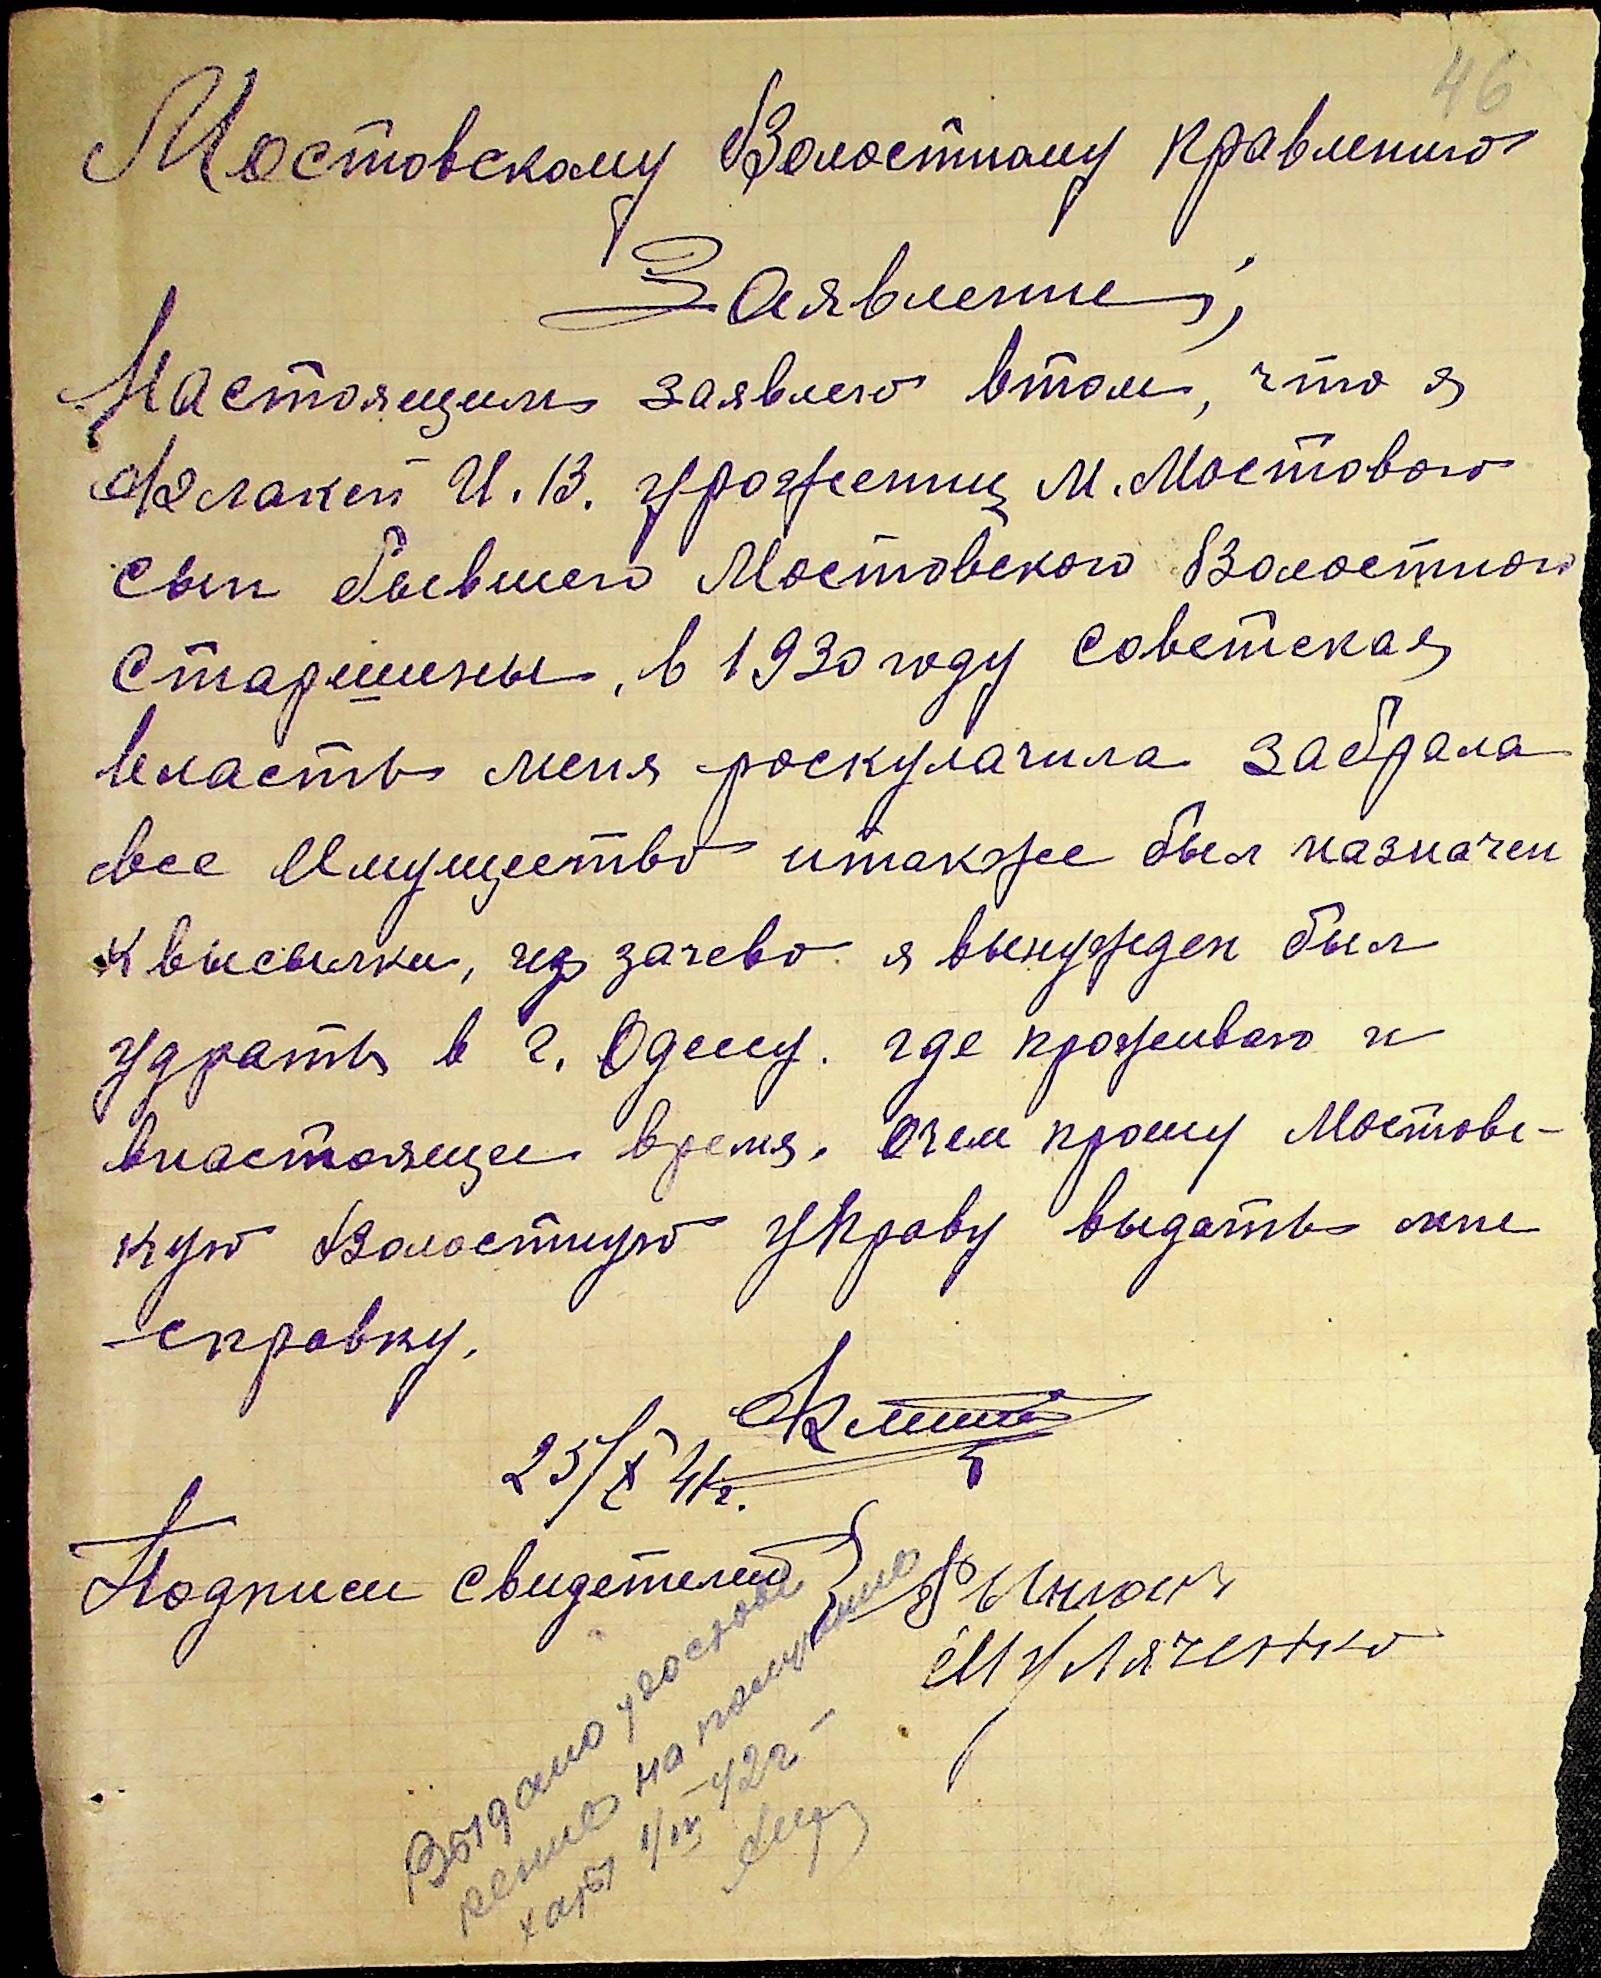 46
Мостовскому Волостному правлению
Заявление;
Настоящим заявлею втом, что я
И. В. уроженец М. Мостового
сын бывшего Мостовского Волостного
старшины, в 1930 году советская
власть меня роскулачила забрала
все Имущество итакже был назначен
к высылки, из зачево я вынужден был
удрать в г. Одессу. где проживаю и
внастоящее время. очем прошу Мостовс-
кую Волостную Управу выдать мне
справку.
25/X 41г.
Подписи свидетелей
Муляченко
Выдано удостове
рение на получение
хаты 1/IV-42г-